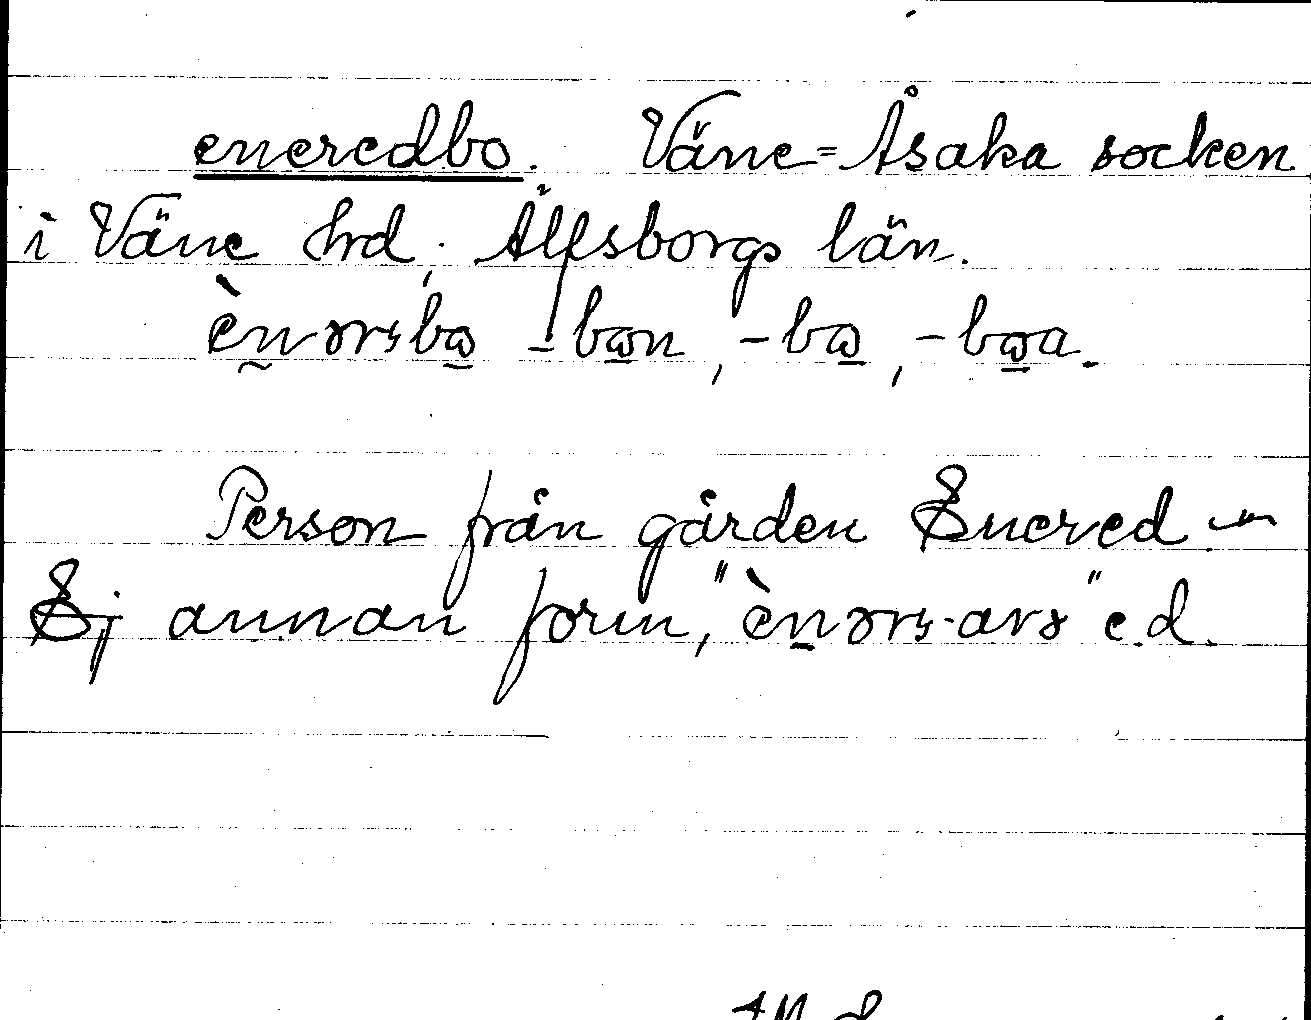 eneredbo. Väne-Åsaka socken
i Väne hrd, Älfsborgs län.
ènərsbɷ -bɷn, -bɷ, -bɷa.
Person från gården Enered
Ej annan form, "ènərs-arə" e.d.